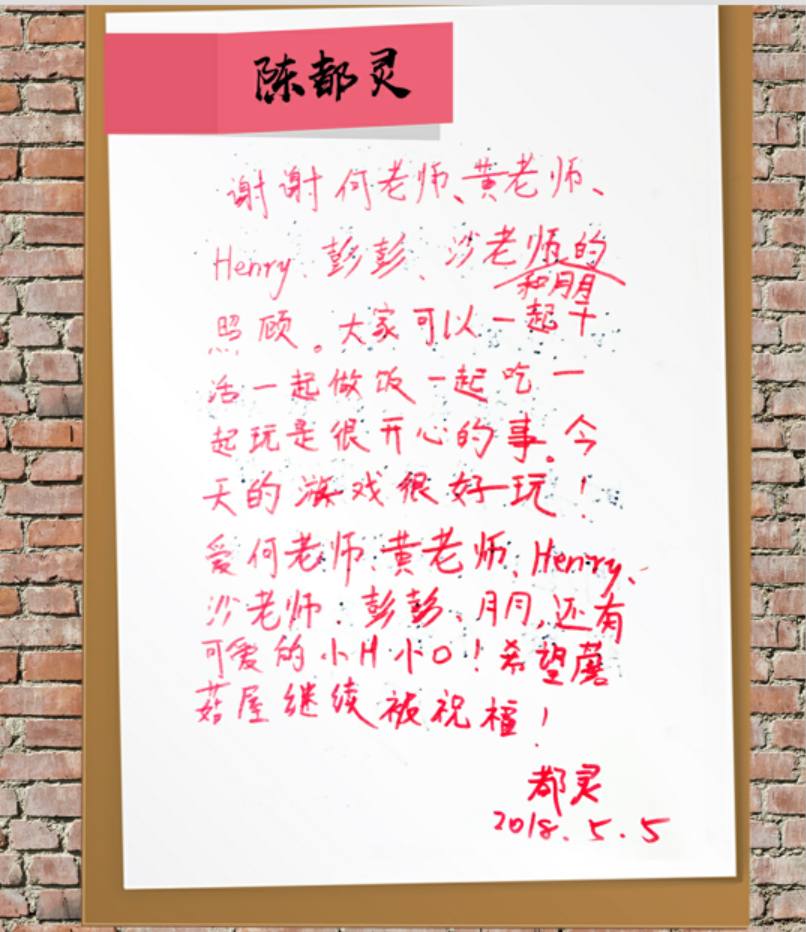 陈都灵
谢谢何老师、黄老师、
Henry、彭彭、沙老师的
和月月
照顾。大家可以一起干
活一起做饭一起吃一
起玩是很开心的事。今
天的游戏很好玩！
爱何老师、黄老师、Henry、
沙老师、彭彭、月月,还有
可爱的小H小O！希望蘑
菇屋继续被祝福！
都灵
2018.5.5